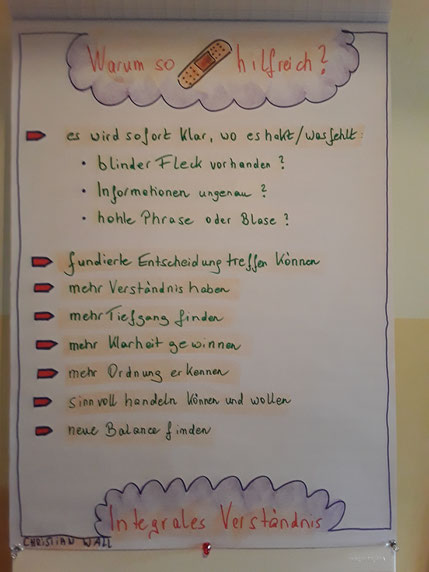 Warum so hilfreich?
es wird sofort klar, wo es hakt/was fehlt:
• blinder Fleck vorhanden?
• Informationen ungenau?
• hohle Phrase oder Blase?
fundierte Entscheidung treffen können
mehr Verständnis haben
mehr Tiefgang finden
mehr Klarheit gewinnen
mehr Ordnung erkennen
sinnvoll handeln können und wollen
neue Balance finden
Integrales Verständnis
CHRISTIAN WALL